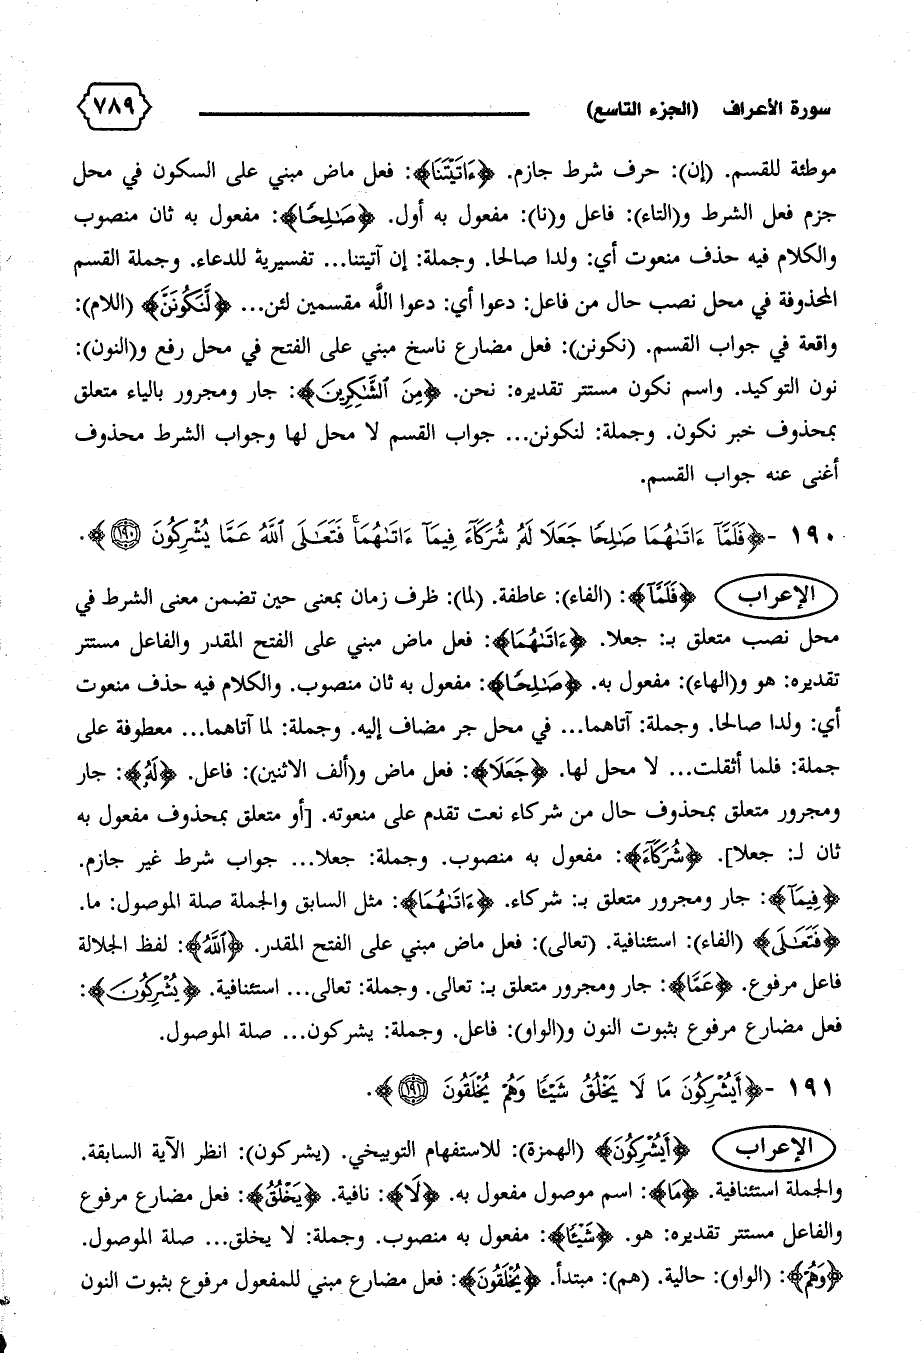 سورة الأعراف (الجزء التاسع) ٧٨٩
موطئة للقسم. (إن): حرف شرط جازم. ﴿ءَاتَيْتَنَا﴾: فعل ماض مبني على السكون في محل
جزم فعل الشرط و(التاء): فاعل و(نا): مفعول به أول. ﴿صَـٰلِحًا﴾: مفعول به ثان منصوب
والكلام فيه حذف منعوت أي: ولدا صالحا. وجملة: إن آتيتنا... تفسيرية للدعاء. وجملة القسم
المحذوفة في محل نصب حال من فاعل: دعوا أي: دعوا اللَّه مقسمين لئن... ﴿لَّنَكُونَنَّ﴾ (اللام):
واقعة في جواب القسم. (نكونن): فعل مضارع ناسخ مبني على الفتح في محل رفع و(النون):
نون التوكيد. واسم نكون مستتر تقديره: نحن. ﴿مِنَ ٱلشَّـٰكِرِينَ﴾: جار ومجرور بالياء متعلق
بمحذوف خبر نكون. وجملة: لنكونن... جواب القسم لا محل لها وجواب الشرط محذوف
أغنى عنه جواب القسم.
١٩٠ -﴿فَلَمَّآ ءَاتَىٰهُمَا صَـٰلِحًا جَعَلَا لَهُۥ شُرَكَآءَ فِيمَآ ءَاتَىٰهُمَا ۚ فَتَعَـٰلَى ٱللَّهُ عَمَّا يُشْرِكُونَ ١٩٠﴾.
الإعراب ﴿فَلَمَّآ﴾: (الفاء): عاطفة. (لما): ظرف زمان بمعنى حين تضمن معنى الشرط في
محل نصب متعلق بـ: جعلا. ﴿ءَاتَىٰهُمَا﴾: فعل ماض مبني على الفتح المقدر والفاعل مستتر
تقديره: هو و(الهاء): مفعول به. ﴿صَـٰلِحًا﴾: مفعول به ثان منصوب. والكلام فيه حذف منعوت
أي: ولدا صالحا. وجملة: آتاهما... في محل جر مضاف إليه. وجملة: لما آتاهما... معطوفة على
جملة: فلما أثقلت... لا محل لها. ﴿جَعَلَا﴾: فعل ماض و(ألف الاثنين): فاعل. ﴿لَهُۥ﴾: جار
ومجرور متعلق بمحذوف حال من شركاء نعت تقدم على منعوته. [أو متعلق بمحذوف مفعول به
ثان لـ: جعلا]. ﴿شُرَكَآءَ﴾: مفعول به منصوب. وجملة: جعلا... جواب شرط غير جازم.
﴿فِيمَآ﴾: جار ومجرور متعلق بـ: شركاء. ﴿ءَاتَىٰهُمَا﴾: مثل السابق والجملة صلة الموصول: ما.
﴿فَتَعَـٰلَى﴾ (الفاء): استئنافية. (تعالى): فعل ماض مبني على الفتح المقدر. ﴿ٱللَّهُ﴾: لفظ الجلالة
فاعل مرفوع. ﴿عَمَّا﴾: جار ومجرور متعلق بـ: تعالى. وجملة: تعالى... استئنافية. ﴿يُشْرِكُونَ﴾:
فعل مضارع مرفوع بثبوت النون و(الواو): فاعل. وجملة: يشركون... صلة الموصول.
١٩١ -﴿أَيُشْرِكُونَ مَا لَا يَخْلُقُ شَيْـًٔا وَهُمْ يُخْلَقُونَ ١٩١﴾.
الإعراب ﴿أَيُشْرِكُونَ﴾ (الهمزة): للاستفهام التوبيخي. (يشركون): انظر الآية السابقة.
والجملة استئنافية. ﴿مَا﴾: اسم موصول مفعول به. ﴿لَا﴾: نافية. ﴿يَخْلُقُ﴾: فعل مضارع مرفوع
والفاعل مستتر تقديره: هو. ﴿شَيْـًٔا﴾: مفعول به منصوب. وجملة: لا يخلق... صلة الموصول.
﴿وَهُمْ﴾: (الواو): حالية. (هم): مبتدأ. ﴿يُخْلَقُونَ﴾: فعل مضارع مبني للمفعول مرفوع بثبوت النون